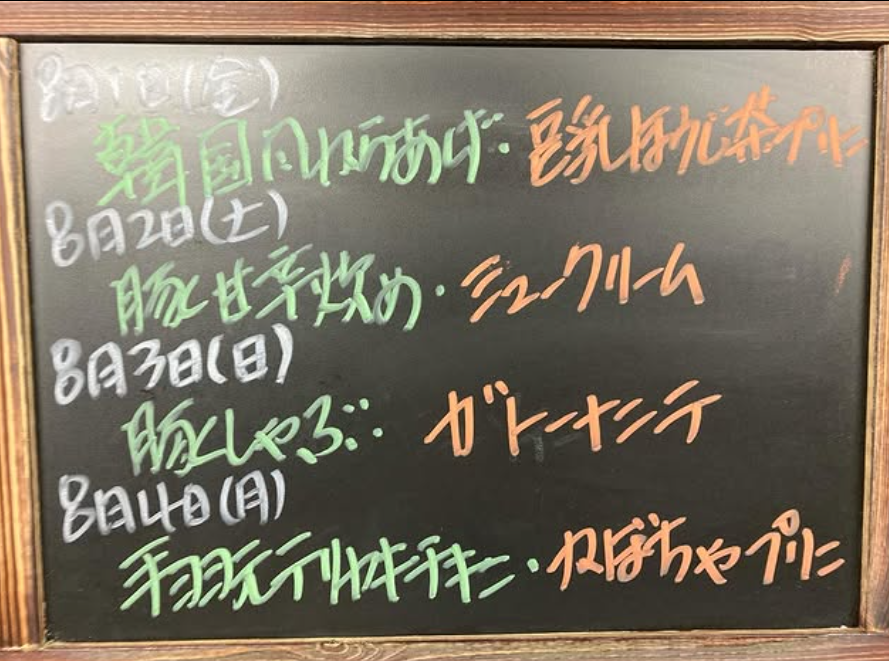 8月1日(金)
韓国風からあげ・豆乳ほうじ茶プリン
8月2日(土)
豚甘辛炒め・シュークリーム
8月3日(日)
豚しゃぶ・ガトーナンテ
8月4日(月)
手羽元テリヤキチキン・かぼちゃプリン